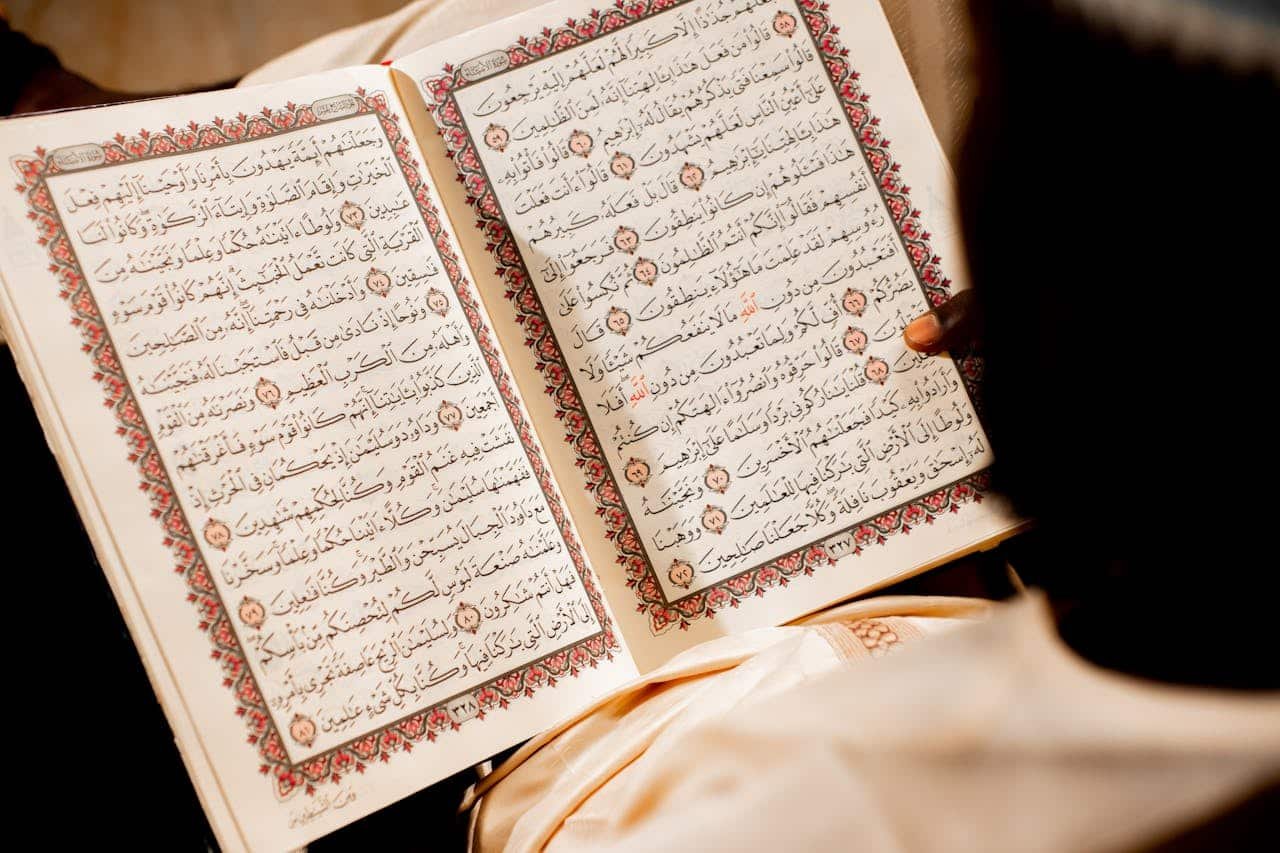 سورة الأنبياء
فَجَعَلَهُمْ جُذَٰذًا إِلَّا كَبِيرًا لَّهُمْ لَعَلَّهُمْ إِلَيْهِ يَرْجِعُونَ ٥٨
قَالُوا۟ مَن فَعَلَ هَٰذَا بِـَٔالِهَتِنَآ إِنَّهُۥ لَمِنَ ٱلظَّٰلِمِينَ ٥٩
قَالُوا۟ سَمِعْنَا فَتًى يَذْكُرُهُمْ يُقَالُ لَهُۥٓ إِبْرَٰهِيمُ ٦٠ قَالُوا۟ فَأْتُوا۟ بِهِۦ
عَلَىٰٓ أَعْيُنِ ٱلنَّاسِ لَعَلَّهُمْ يَشْهَدُونَ ٦١ قَالُوٓا۟ ءَأَنتَ فَعَلْتَ
هَٰذَا بِـَٔالِهَتِنَا يَٰٓإِبْرَٰهِيمُ ٦٢ قَالَ بَلْ فَعَلَهُۥ كَبِيرُهُمْ
هَٰذَا فَسْـَٔلُوهُمْ إِن كَانُوا۟ يَنطِقُونَ ٦٣ فَرَجَعُوٓا۟ إِلَىٰٓ
أَنفُسِهِمْ فَقَالُوٓا۟ إِنَّكُمْ أَنتُمُ ٱلظَّٰلِمُونَ ٦٤ ثُمَّ نُكِسُوا۟ عَلَىٰ
رُءُوسِهِمْ لَقَدْ عَلِمْتَ مَا هَٰٓؤُلَآءِ يَنطِقُونَ ٦٥ قَالَ
أَفَتَعْبُدُونَ مِن دُونِ ٱللَّهِ مَا لَا يَنفَعُكُمْ شَيْـًٔا وَلَا
يَضُرُّكُمْ ٦٦ أُفٍّ لَّكُمْ وَلِمَا تَعْبُدُونَ مِن دُونِ ٱللَّهِ أَفَلَا
٦٧ قَالُوا۟ حَرِّقُوهُ وَٱنصُرُوٓا۟ ءَالِهَتَكُمْ إِن كُنتُمْ
٦٨ قُلْنَا يَٰنَارُ كُونِى بَرْدًا وَسَلَٰمًا عَلَىٰٓ إِبْرَٰهِيمَ ٦٩
وَأَرَادُوا۟ بِهِۦ كَيْدًا فَجَعَلْنَٰهُمُ ٱلْأَخْسَرِينَ ٧٠ وَنَجَّيْنَٰهُ
وَلُوطًا إِلَى ٱلْأَرْضِ ٱلَّتِى بَٰرَكْنَا فِيهَا لِلْعَٰلَمِينَ ٧١ وَوَهَبْنَا
لَهُۥٓ إِسْحَٰقَ وَيَعْقُوبَ نَافِلَةً وَكُلًّا جَعَلْنَا صَٰلِحِينَ ٧٢
٣٢٧
الجزء السابع عشر
سورة الأنبياء
وَجَعَلْنَٰهُمْ أَئِمَّةً يَهْدُونَ بِأَمْرِنَا وَأَوْحَيْنَآ إِلَيْهِمْ فِعْلَ
ٱلْخَيْرَٰتِ وَإِقَامَ ٱلصَّلَوٰةِ وَإِيتَآءَ ٱلزَّكَوٰةِ وَكَانُوا۟ لَنَا
عَٰبِدِينَ ٧٣ وَلُوطًا ءَاتَيْنَٰهُ حُكْمًا وَعِلْمًا وَنَجَّيْنَٰهُ مِنَ
ٱلْقَرْيَةِ ٱلَّتِى كَانَت تَّعْمَلُ ٱلْخَبَٰٓئِثَ إِنَّهُمْ كَانُوا۟ قَوْمَ سَوْءٍ
فَٰسِقِينَ ٧٤ وَأَدْخَلْنَٰهُ فِى رَحْمَتِنَآ إِنَّهُۥ مِنَ ٱلصَّٰلِحِينَ
٧٥ وَنُوحًا إِذْ نَادَىٰ مِن قَبْلُ فَٱسْتَجَبْنَا لَهُۥ فَنَجَّيْنَٰهُ
وَأَهْلَهُۥ مِنَ ٱلْكَرْبِ ٱلْعَظِيمِ ٧٦ وَنَصَرْنَٰهُ مِنَ ٱلْقَوْمِ
ٱلَّذِينَ كَذَّبُوا۟ بِـَٔايَٰتِنَآ إِنَّهُمْ كَانُوا۟ قَوْمَ سَوْءٍ فَأَغْرَقْنَٰهُمْ
أَجْمَعِينَ ٧٧ وَدَاوُۥدَ وَسُلَيْمَٰنَ إِذْ يَحْكُمَانِ فِى ٱلْحَرْثِ إِذْ
نَفَشَتْ فِيهِ غَنَمُ ٱلْقَوْمِ وَكُنَّا لِحُكْمِهِمْ شَٰهِدِينَ ٧٨
فَفَهَّمْنَٰهَا سُلَيْمَٰنَ وَكُلًّا ءَاتَيْنَا حُكْمًا وَعِلْمًا وَسَخَّرْنَا
مَعَ دَاوُۥدَ ٱلْجِبَالَ يُسَبِّحْنَ وَٱلطَّيْرَ وَكُنَّا فَٰعِلِينَ ٧٩
وَعَلَّمْنَٰهُ صَنْعَةَ لَبُوسٍ لَّكُمْ لِتُحْصِنَكُم مِّنۢ بَأْسِكُمْ
فَهَلْ أَنتُمْ شَٰكِرُونَ ٨٠ وَلِسُلَيْمَٰنَ ٱلرِّيحَ عَاصِفَةً تَجْرِى بِأَمْرِهِۦٓ
إِلَى ٱلْأَرْضِ ٱلَّتِى بَٰرَكْنَا فِيهَا وَكُنَّا بِكُلِّ شَىْءٍ عَٰلِمِينَ ٨١
٣٢٨
وَمِنَ ٱلشَّيَٰطِينِ مَن